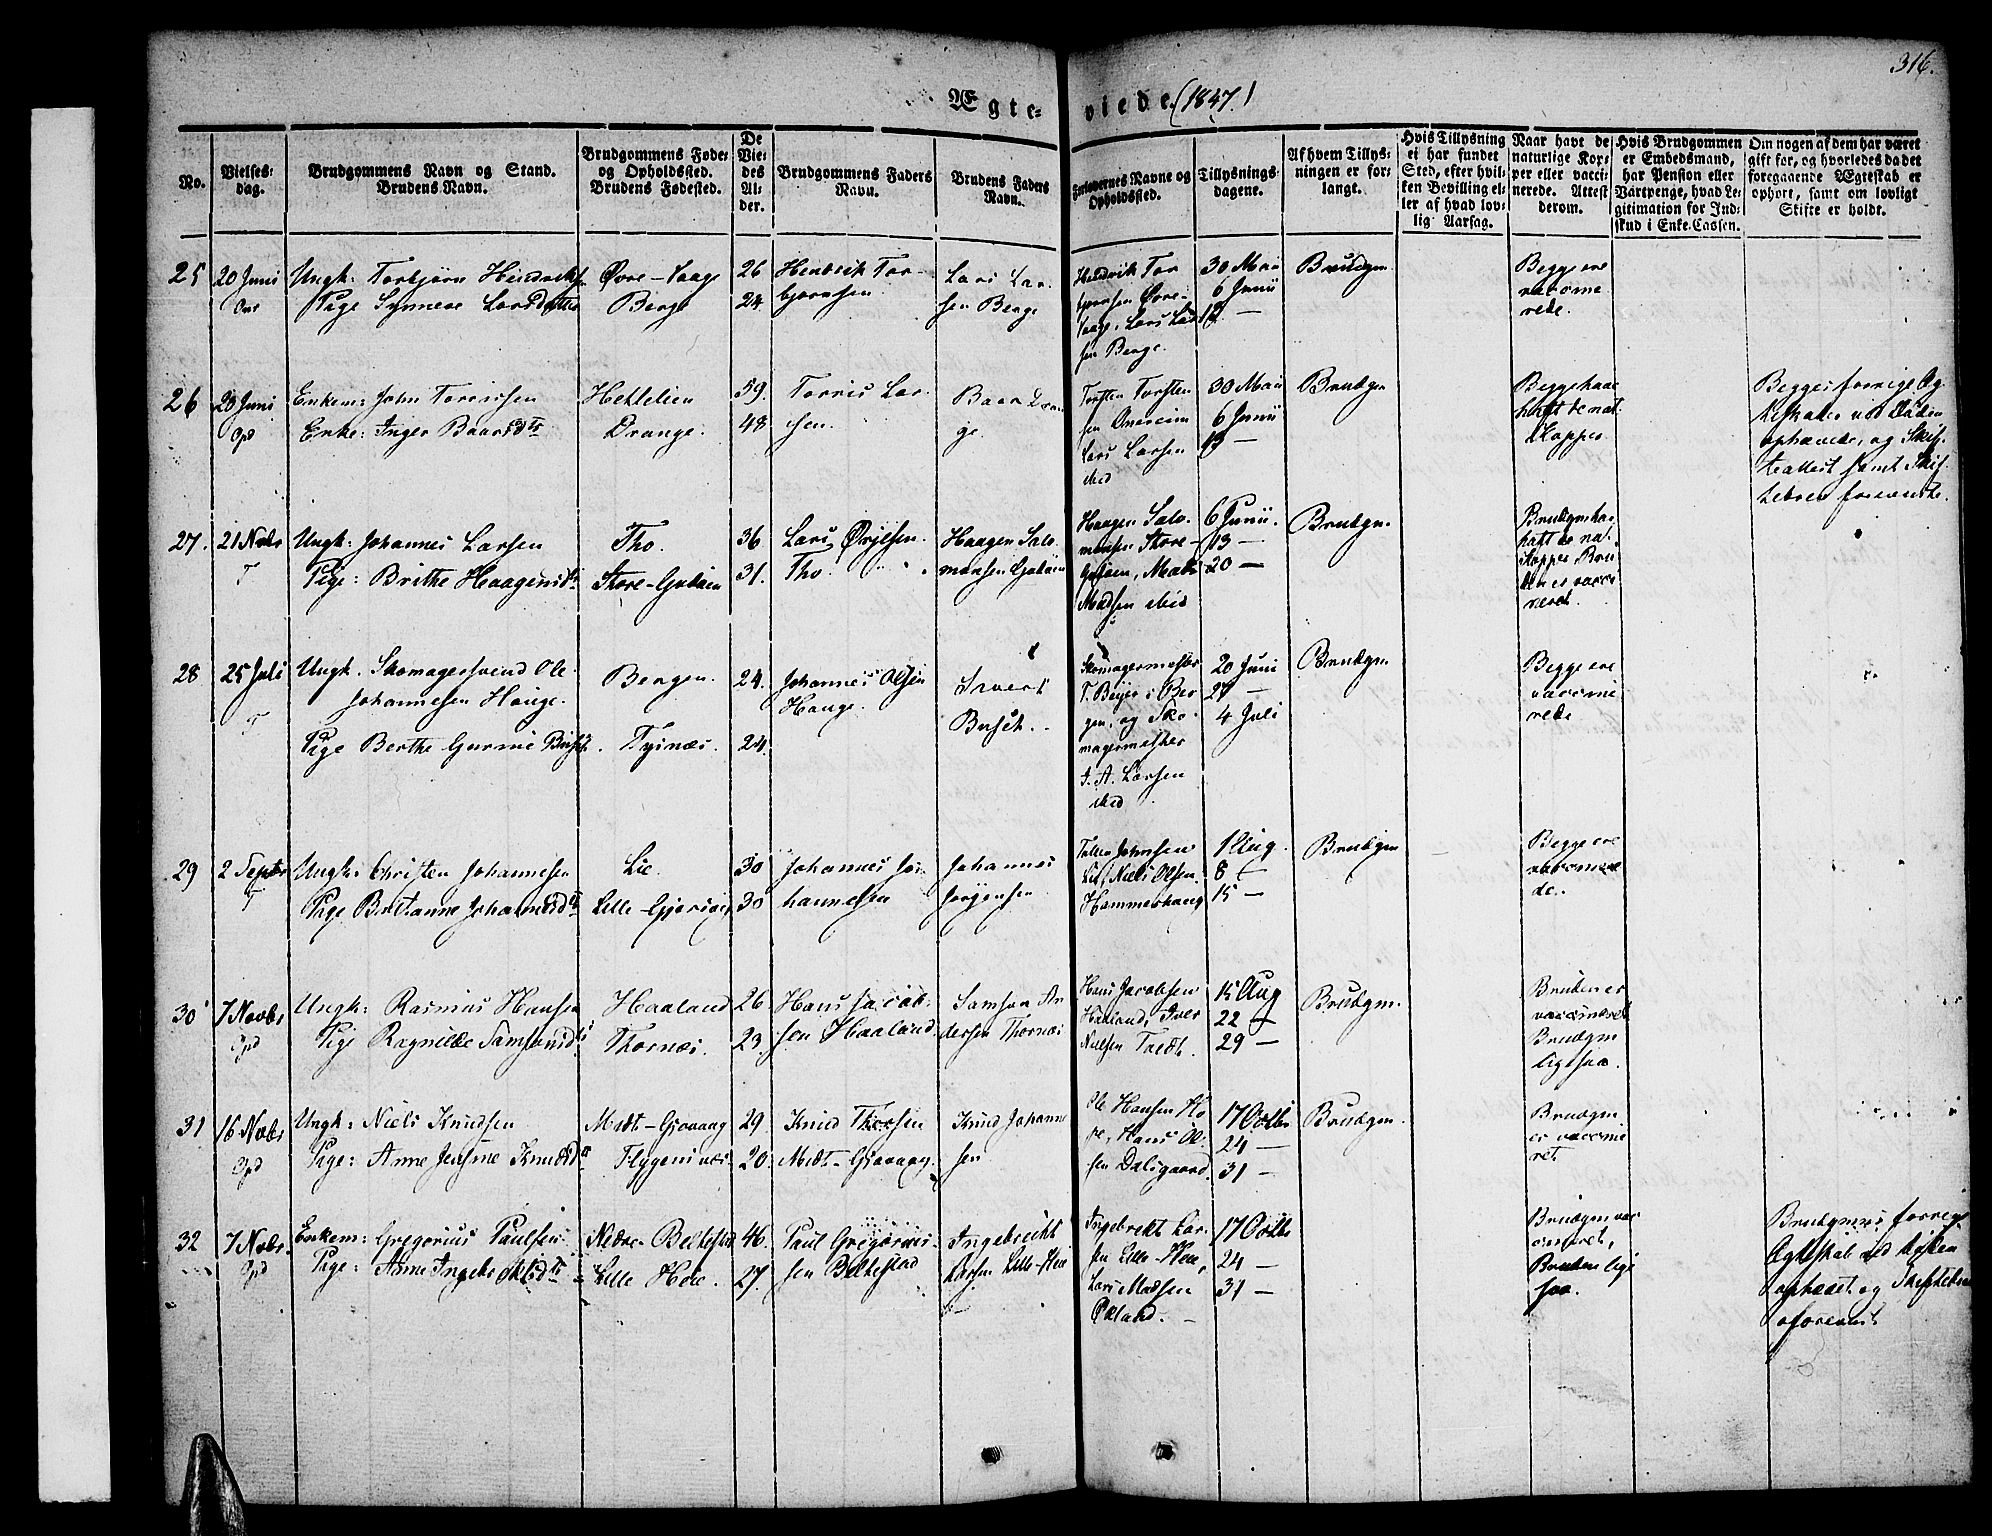 316.
Ægte-viede (1847.)
No.
Vielses-
dag.
Brudgommens Navn og Stand.
Brudens Navn.
Brudgommens Føde-
og Opholdsted.
Brudens Fødested.
De
Vie-
des
Al-
der.
Brudgommens Faders
Navn.
Brudens Faders
Navn.
Forlovernes Navne og
Opholdssted.
Tillysnings-
dagene.
Af hvem Tillys-
ningen er for-
langt.
Hvis Tillysning
ei har fundet
Sted, efter hvil-
ken Bevilling el-
ler af hvad lov-
lig Aarsag.
Naar havt de
naturlige Kop-
per eller vacci-
nerede. Attest
derom.
Hvis Brudgommen
er Embedsmand,
har Pension eller
Vartpenge, hvad Le-
gitimation for Ind-
skud i Enke-Cassen.
Om nogen af dem har været
gift før, og hvorledes da det
foregaaende Ægteskab er
ophørt, samt om lovligt
Skifte er holdt.
25
20 Juni
Ungk: Torbjørn Hendriks
Pige Synneve Larsdatter
Øvre-Vaage
Berge
26
24
Hendrik Tor-
bjørnsen
Lars Lar-
sen Berge
Hendrik Tor
bjørnsen Øvre-
Vaage, Lars Lar
sen Berge
30 Mai
6 Junii
13 —
Brudgm
Begge ere
vaccine
rede.
26
20 Juni
Opd
Enkem: John Torrissen
Enke: Inger Baarsdtr
Hettelien
Drange.
59.
48
Torris Lar-
sen.
Baar Dran
ge.
Torsten Torsten
sen Onarheim
Lars Larsen
ibid
30 Mai
6 Junii
13 —
Brudgm
Begge have
havt de nat.
Kopper
Begges forrige Æg-
teskaber ved Døden
ophævede, og Skif-
teattest samt Skif-
tebrev foreviiste.
27.
21 Novbr
T
Ungk: Johannes Larsen
Pige: Brithe Haagensdtr
Tho.
Store-Godøen
36
31.
Lars Øriesen
Tho.
Haagen Salo-
monsen Godøen
Haagen Salo-
monsen Store-
Godøen, Mads
Madsen ibid
6 Junii.
13 —
20 —
Brudgm.
Brudgm har
havt de nat.
Kopper Bru
den er vacci
neret.
28
25 Juli
T
Ungk. Skomagersvend Ole
Johannesen Hauge.
Pige Berthe Gurine Busch
Bergen.
Tysnæs.
24.
24.
Johannes Olsen
Hauge.
Sivert
Busch.
Skomagermester
T. Beyer i Ber
gen, og Sko-
magermester
J. A. Larsen
ibid
20 Juni
27 —
4 Juli
Brudgm.
Begge ere
vaccine
rede
29
2 Septbr
T
Ungk: Christen Johannesen
Pige Britanne Johannesdtr
Lie.
Lille-Gjersvig
30
30
Johannes Jo-
hannesen
Johannes
Jørgensen
Lie, Niels Olsen.
Hammerhaug
1 Aug.
8 —
15 —
Brudgm
Begge ere
vaccinere
de.
30
7 Novbr
Opd
Ungk: Rasmus Hansen
Pige Ragnilde Samsonsdtr
Haaland
Thornæs.
26
23
Hans Jacob-
sen Haaland
Samson An
dersen Thornæs
Hans Jacobsen
Haaland, Iver
Nielsen Tvedt.
15 Aug
22 —
29 —
Brudgm.
Bruden er
vaccineret
Brudgm
ligesaa.
31
16 Novbr
Opd
Ungk: Niels Knudsen
Pige: Anne Jensine Knudsdtr
Midt-Gravaag
Flygensnæs
29.
20.
Knud Thorsen
Midt-Gravaag.
Knud Johanne
sen
Ole Hansen Ho
pe, Hans Ol-
sen Dalsgaard
17 Octbr
24 —
31 —
Brudgm.
Brudgm
er vaccine
ret.
32
7 Novbr.
Opd
Enkem: Gregorius Paulsen
Pige: Anne
Nedre-Beltestad
Lille Hoie
46.
27.
Paul Gregorius-
sen Beltestad
Ingebrecht
Larsen Lille-Hoie
Ingebrekt Lar-
sen Lille-Hoie,
Lars Madsen
Økland.
17 Octbr
24 —
31 —
Brudgm vac
cineret,
Bruden lige
saa.
Brudgmes forrige
Ægteskab ved Døden
ophævet og Skiftebrev
foreviist